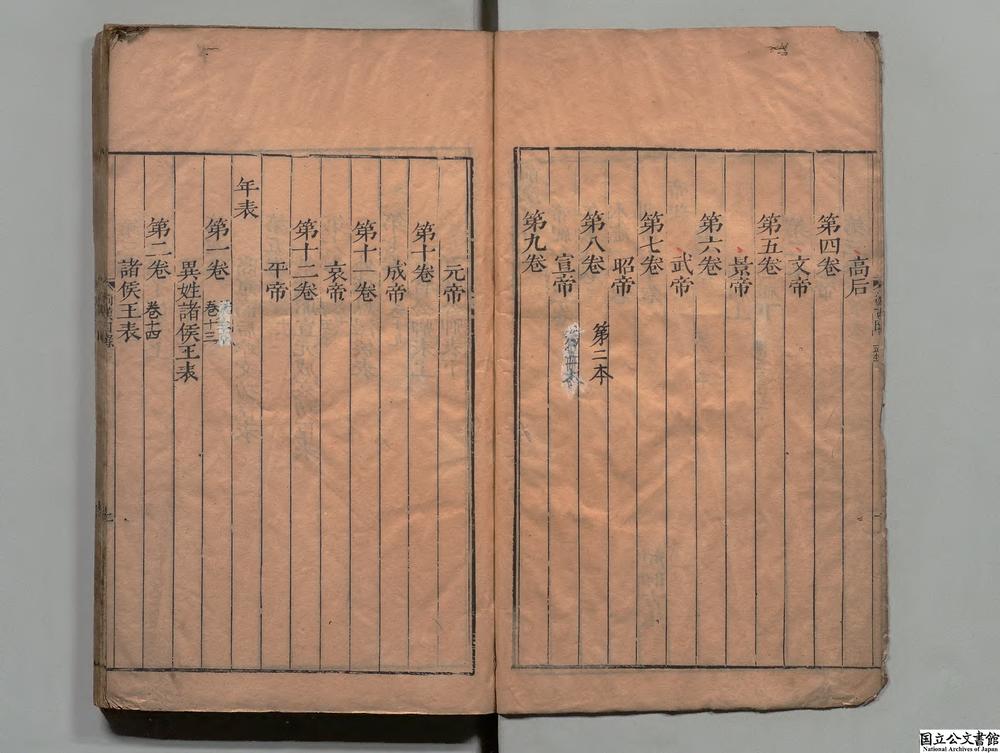 高后
第四卷
文帝
第五卷
景帝
第六卷
武帝
第七卷
昭帝
第八卷 第二本
宣帝
第九卷
元帝
第十卷
成帝
第十一卷
哀帝
第十二卷
平帝
年表
第一卷 卷十三
異姓諸侯王表
第二卷 卷十四
諸侯王表
国立公文書館
National Archives of Japan